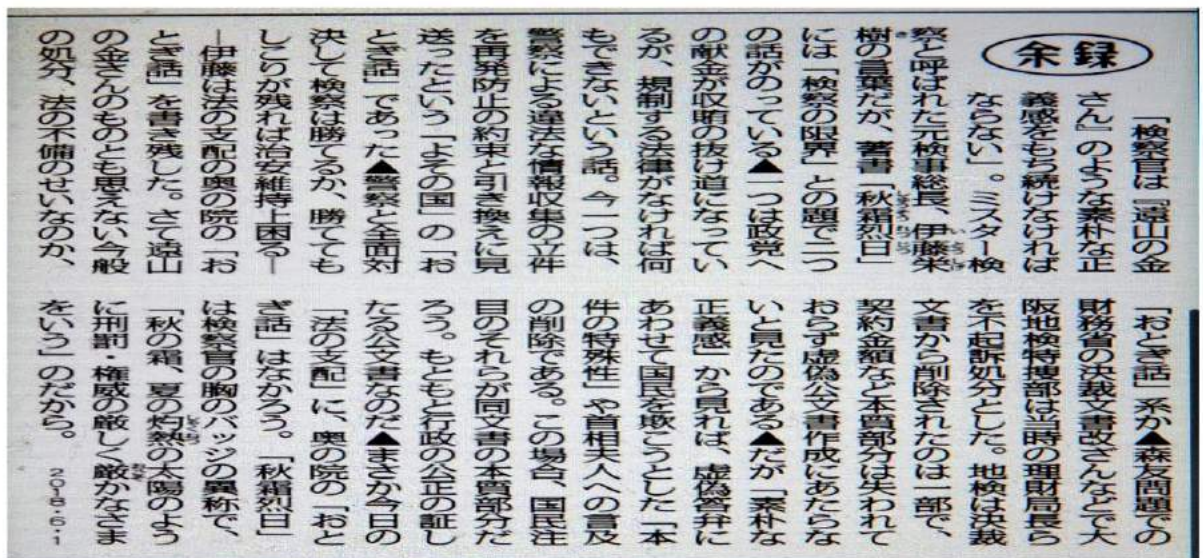 余録
「検察官は『遠山の金
さん』のような素朴な正
義感をもち続けなければ
ならない」。ミスター検
察と呼ばれた元検事総長、伊藤栄
樹の言葉だが、著書「秋霜烈日」
には「検察の限界」との題で二つ
の話がのっている▲一つは政党へ
の献金が収賄の抜け道になってい
るが、規制する法律がなければ何
もできないという話。今一つは、
警察による違法な情報収集の立件
を再発防止の約束と引き換えに見
送ったという「よその国」の「お
とぎ話」であった▲警察と全面対
決して検察は勝てるか、勝てても
しこりが残れば治安維持上困る―
―伊藤は法の支配の奥の院の「お
とぎ話」を書き残した。さて遠山
の金さんのものとも思えない今般
の処分、法の不備のせいなのか、
「おとぎ話」系か▲森友問題での
財務省の決裁文書改ざんなどで大
阪地検特捜部は当時の理財局長ら
を不起訴処分とした。地検は決裁
文書から削除されたのは一部で、
契約金額など本質部分は失われて
おらず虚偽公文書作成にあたらな
いと見たのである▲だが「素朴な
正義感」から見れば、虚偽答弁に
あわせて国民を欺こうとした「本
件の特殊性」や首相夫人への言及
の削除である。この場合、国民注
目のそれらが同文書の本質部分だ
ろう。もともと行政の公正の証し
たる公文書なのだ▲まさか今日の
「法の支配」に、奥の院の「おと
ぎ話」はなかろう。「秋霜烈日」
は検察官の胸のバッジの異称で、
「秋の霜、夏の灼熱の太陽のよう
に刑罰・権威の厳しく厳かなさま
をいう」のだから。
2018・6・1